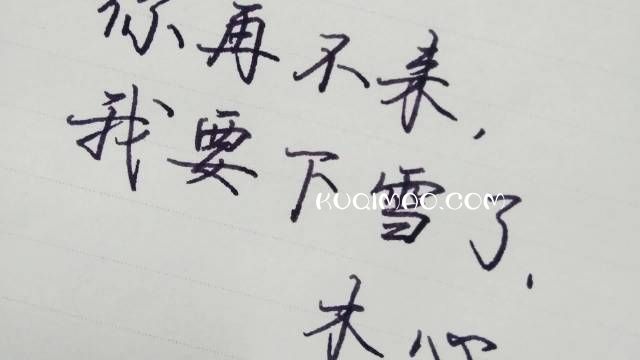 你再不来,
我要下雪了,
KUQIMAO.COM
木心